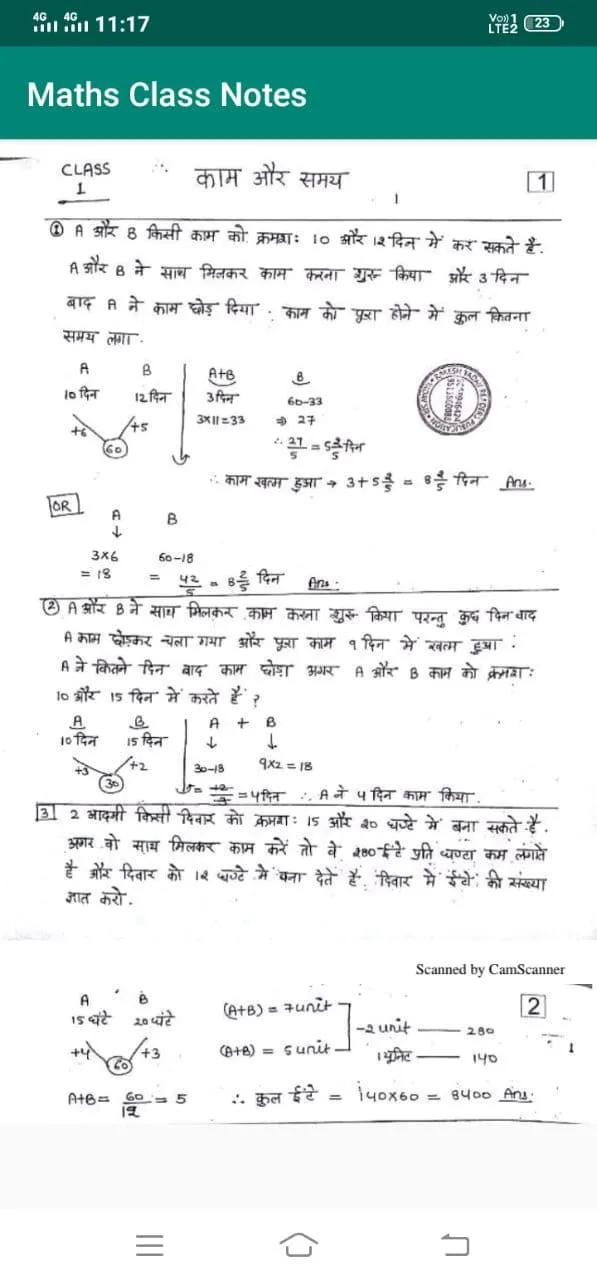 4G 4G 11:17 Vo)) 1 LTE2 23
Maths Class Notes
CLASS 1 ∴ काम और समय 1
① A और B किसी काम को क्रमशः 10 और 12 दिन में कर सकते है.
A और B ने साथ मिलकर काम करना शुरू किया और 3 दिन
बाद A ने काम छोड़ दिया . काम को पूरा होने में कुल कितना
समय लगा .
A B A+B B
10 दिन 12 दिन 3 दिन 60-33
+6 +5 3x11=33 ⇒ 27
60 ∴ 27/5 = 5 2/5 दिन
∴ काम खत्म हुआ → 3+5 2/5 = 8 2/5 दिन Ans.
OR
A B
↓
3x6 60-18
= 18 = 42/5 = 8 2/5 दिन Ans:
② A और B ने साथ मिलकर काम करना शुरू किया परन्तु कुछ दिन बाद
A काम छोड़कर चला गया और पूरा काम 9 दिन में खत्म हुआ :
A ने कितने दिन बाद काम छोड़ा अगर A और B काम को क्रमशः
10 और 15 दिन में करते हैं ?
A B A + B
10 दिन 15 दिन ↓ ↓
+3 +2 30-18 9x2 = 18
30 = 12/3 = 4 दिन ∴ A ने 4 दिन काम किया .
3 2 आदमी किसी दिवार को क्रमशः 15 और 20 घण्टे में बना सकते है .
अगर वो साथ मिलकर काम करें तो वे 280 ईटे प्रति घण्टा कम लगाते
है और दिवार को 12 घण्टे में बना देते है. दिवार में ईटों की संख्या
ज्ञात करो .
Scanned by CamScanner
A B (A+B) = 7 unit 2
15 घंटे 20 घंटे -2 unit — 280
+4 +3 (A+B) = 5 unit 1 यूनिट — 140
60
A+B = 60/12 = 5 ∴ कुल ईंटे = 140x60 = 8400 Ans.